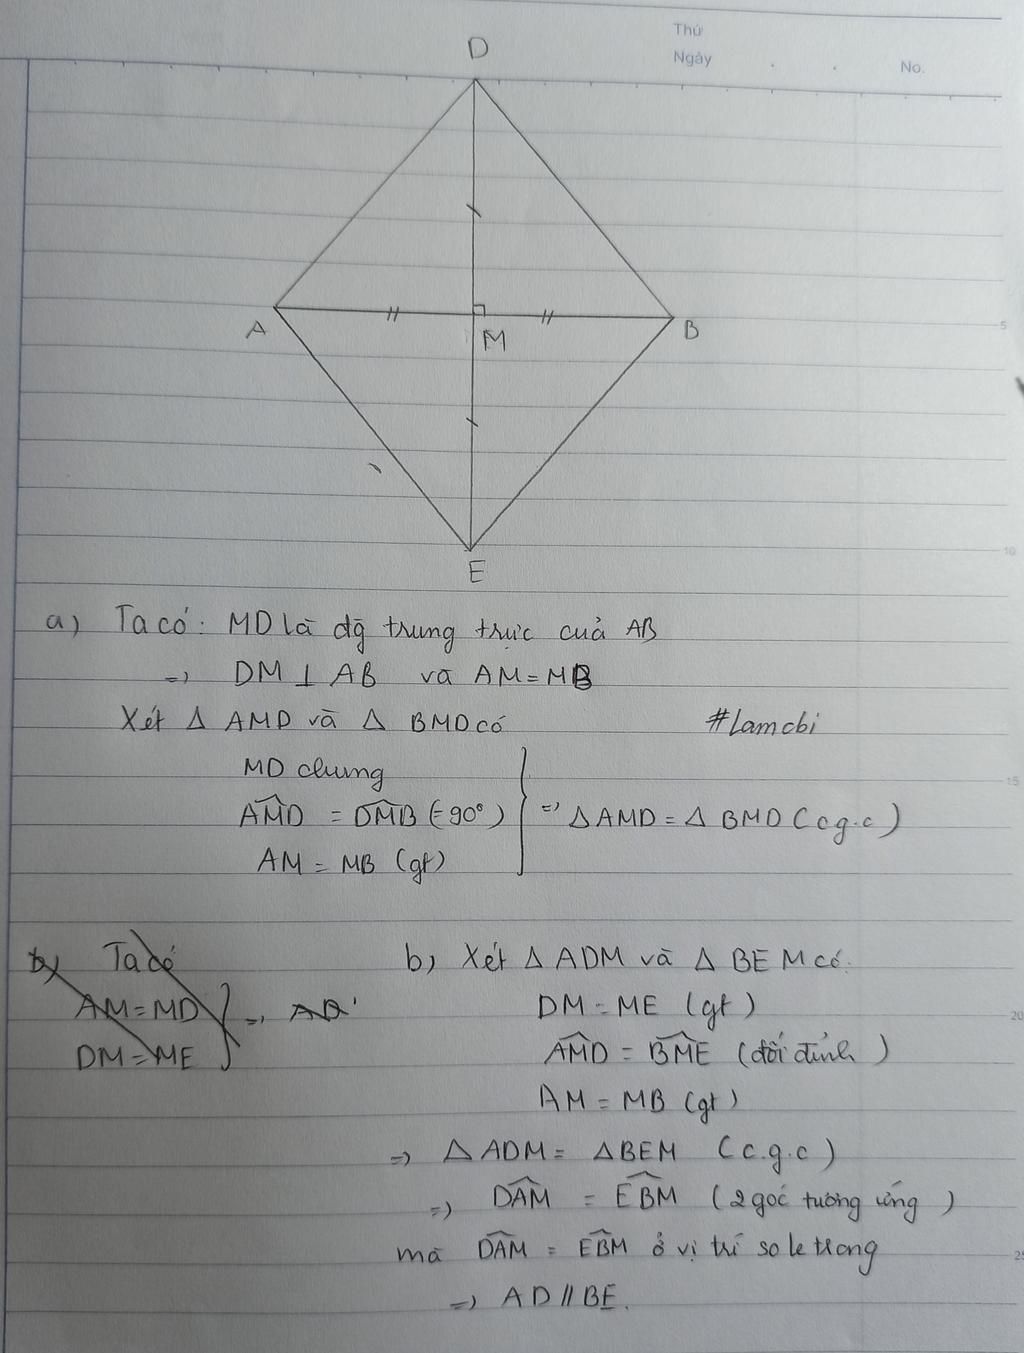 Thứ
Ngày
No.
D
A
M
B
5
E
10
a) Ta có: MD là đg trung trực cuả AB
=> DM ⊥ AB và AM = MB
Xét Δ AMD và Δ BMD có
#Lamcbi
MD chung
15
AMD = DMB (=90°) => Δ AMD = Δ BMD (c g.c)
AM = MB (gt)
b) Ta có
AM = MD => AD'
DM = ME
b) Xét Δ ADM và Δ BEM có:
DM = ME (gt)
20
AMD = BME (đối đỉnh)
AM = MB (gt)
=> Δ ADM = Δ BEM (c.g.c)
=> DAM = EBM (2 góc tương ứng)
mà DAM = EBM ở vị trí so le trong
25
=> AD // BE.